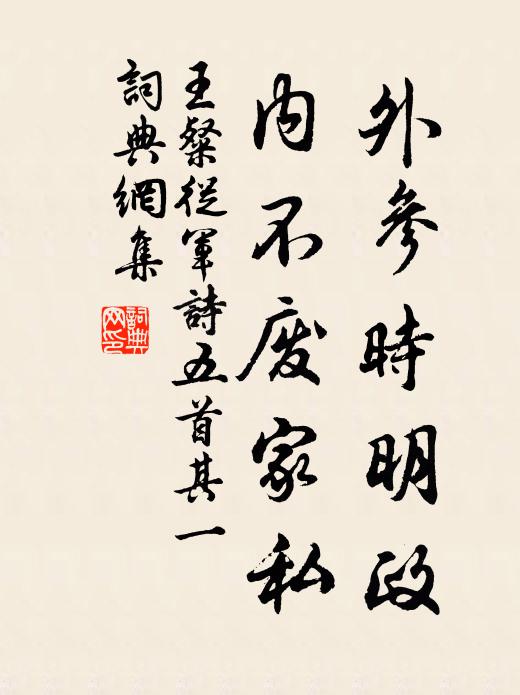 外參時明政
內不廢家私
王粲從軍詩五首其一
詞典網集
詞典网印